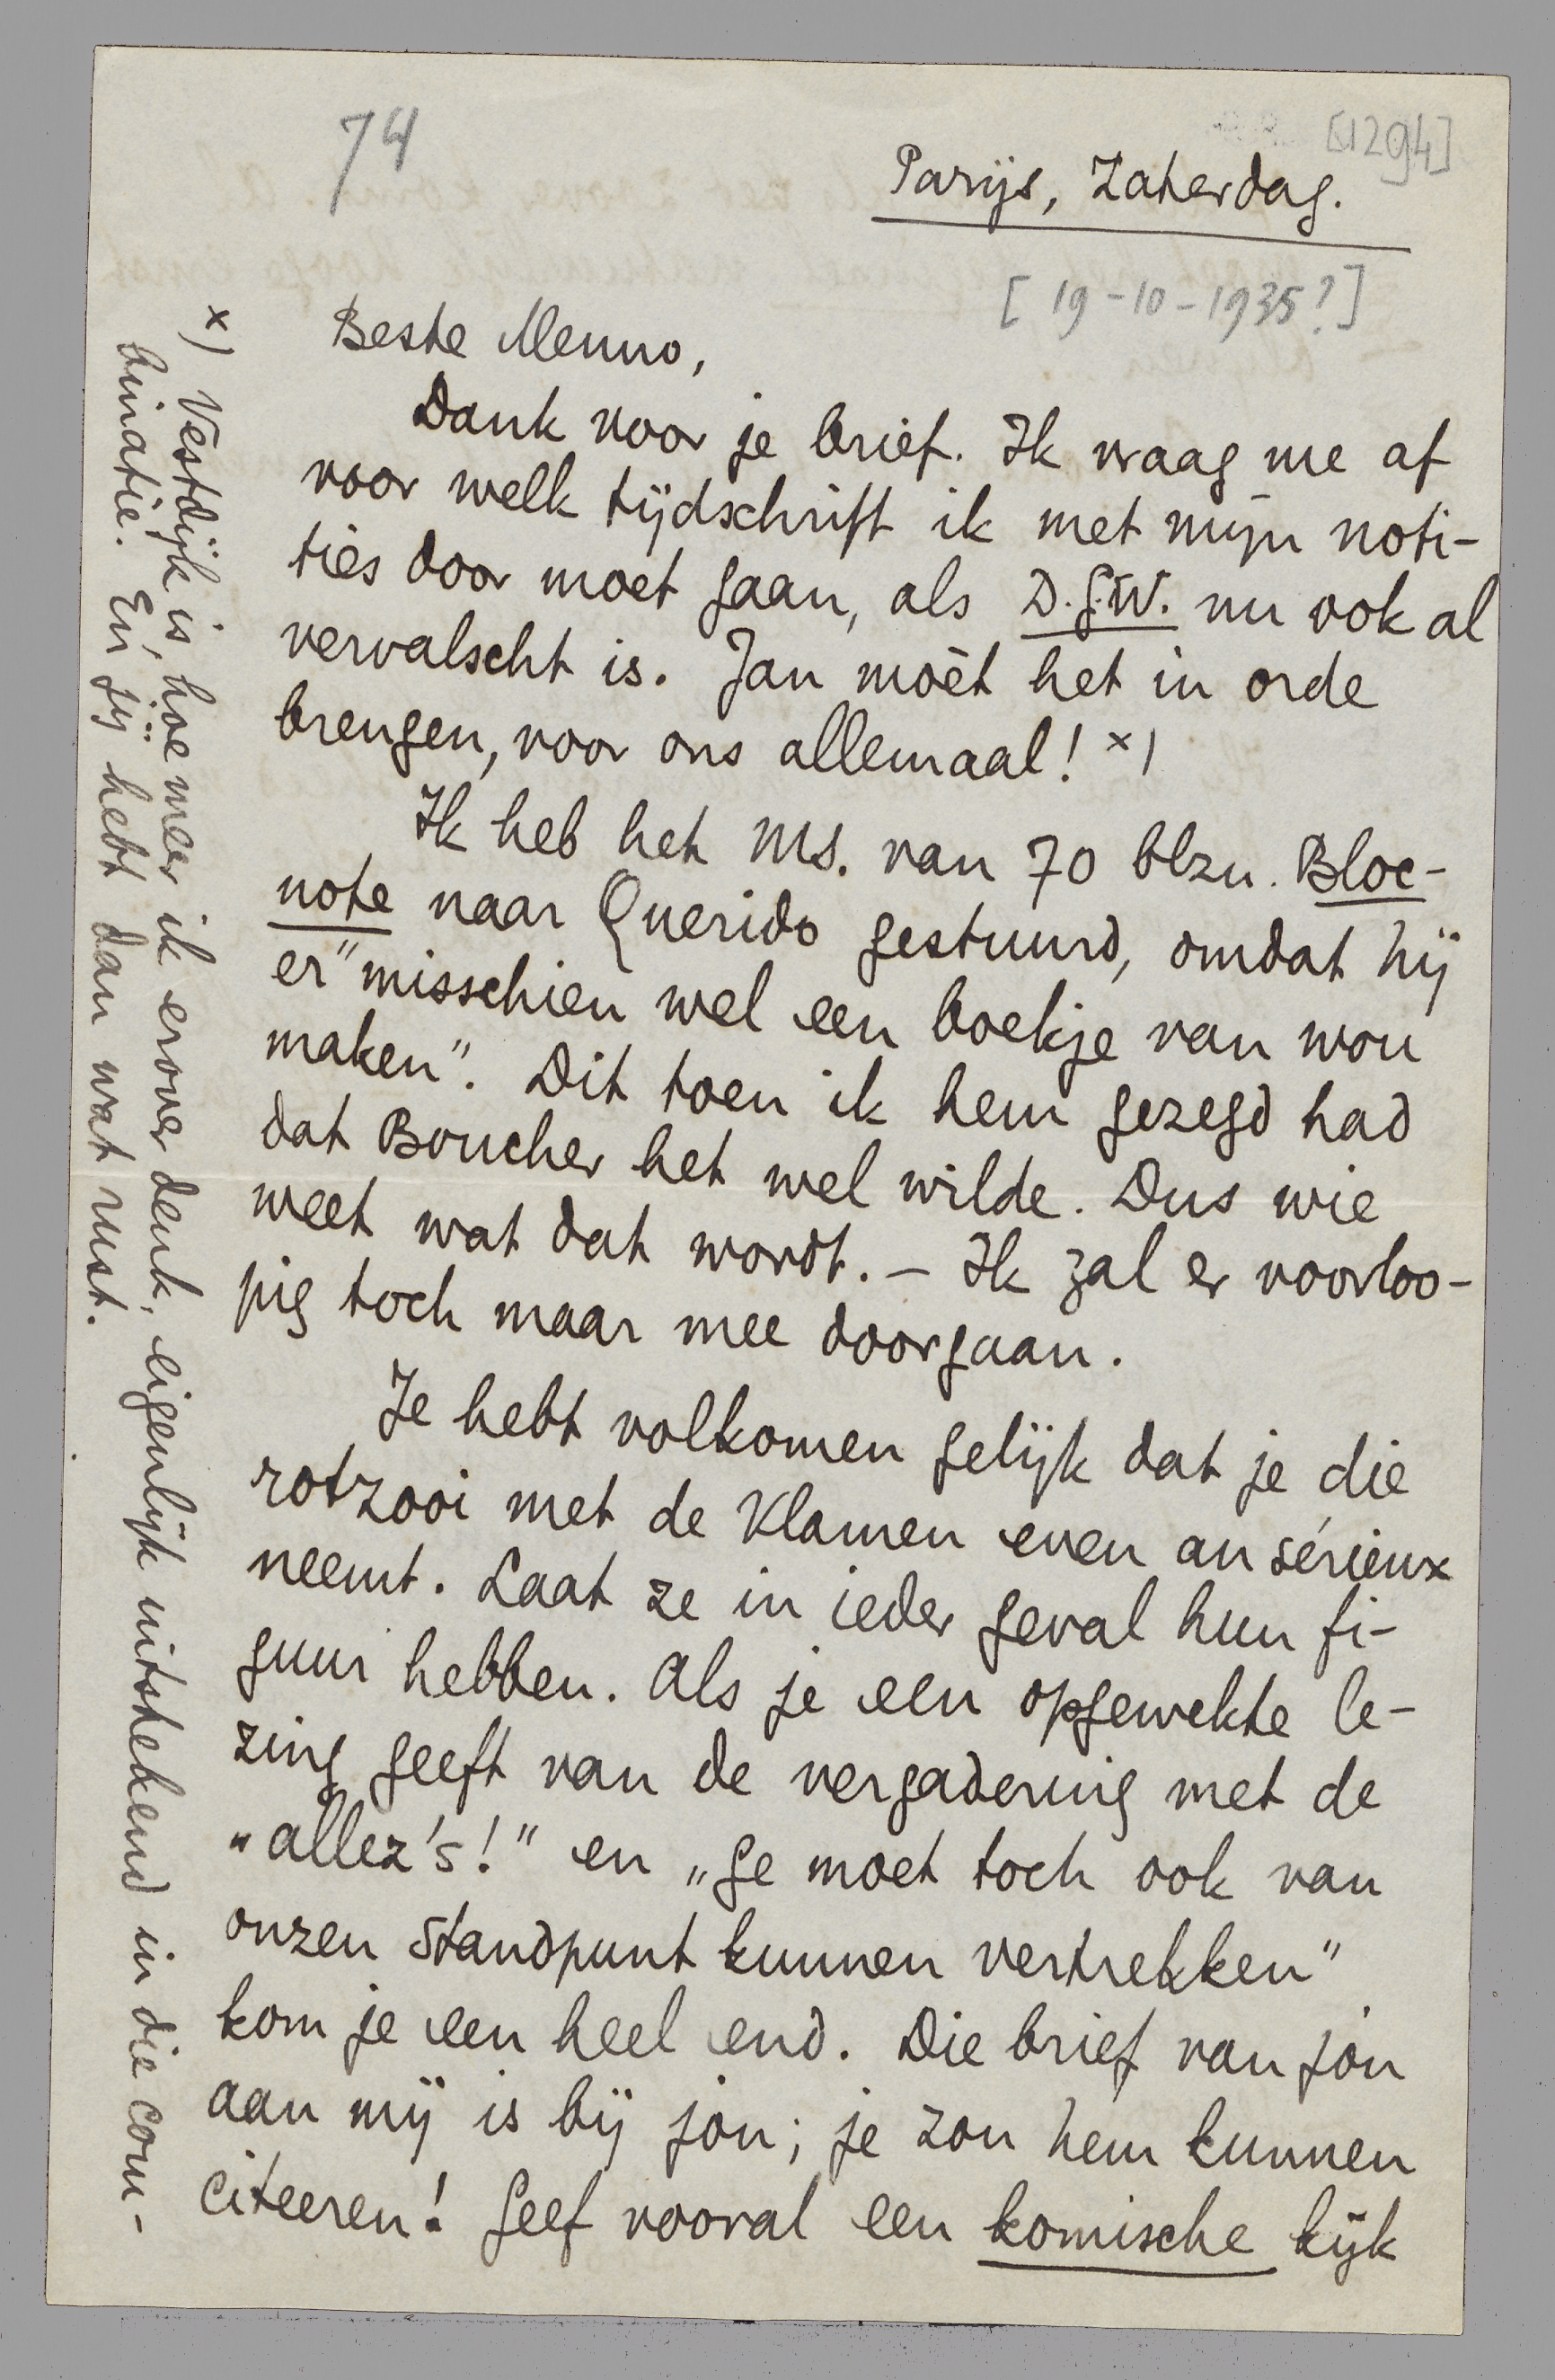 74
[1294]
Parijs, Zaterdag.
[19-10-1935?]
Beste Menno,
Dank voor je brief. Ik vraag me af
voor welk tijdschrift ik met mijn noti-
ties door moet gaan, als D.G.W. nu ook al
vervalscht is. Jan moèt het in orde
brengen, voor ons allemaal! x)
Ik heb het Ms. van 70 blzn. Bloc-
note naar Querido gestuurd, omdat hij
er "misschien wel een boekje van wou
maken". Dit toen ik hem gezegd had
dat Boucher het wel wilde. Dus wie
weet wat dat wordt. – Ik zal er voorloo-
pig toch maar mee doorgaan.
Je hebt volkomen gelijk dat je die
rotzooi met de Vlamen even au sérieux
neemt. Laat ze in ieder geval hun fi-
guur hebben. Als je een opgewekte le-
zing geeft van de vergadering met de
"allez's!" en „ge moet toch ook van
onzen standpunt kunnen vertrekken"
kom je een heel end. Die brief van jou
aan mij is bij jou; je zou hem kunnen
citeeren! Geef vooral een komische kijk
x) Vestdijk is, hoe meer ik erover denk, eigenlijk uitstekend in die com-
binatie. En jij hebt dan wat rust.